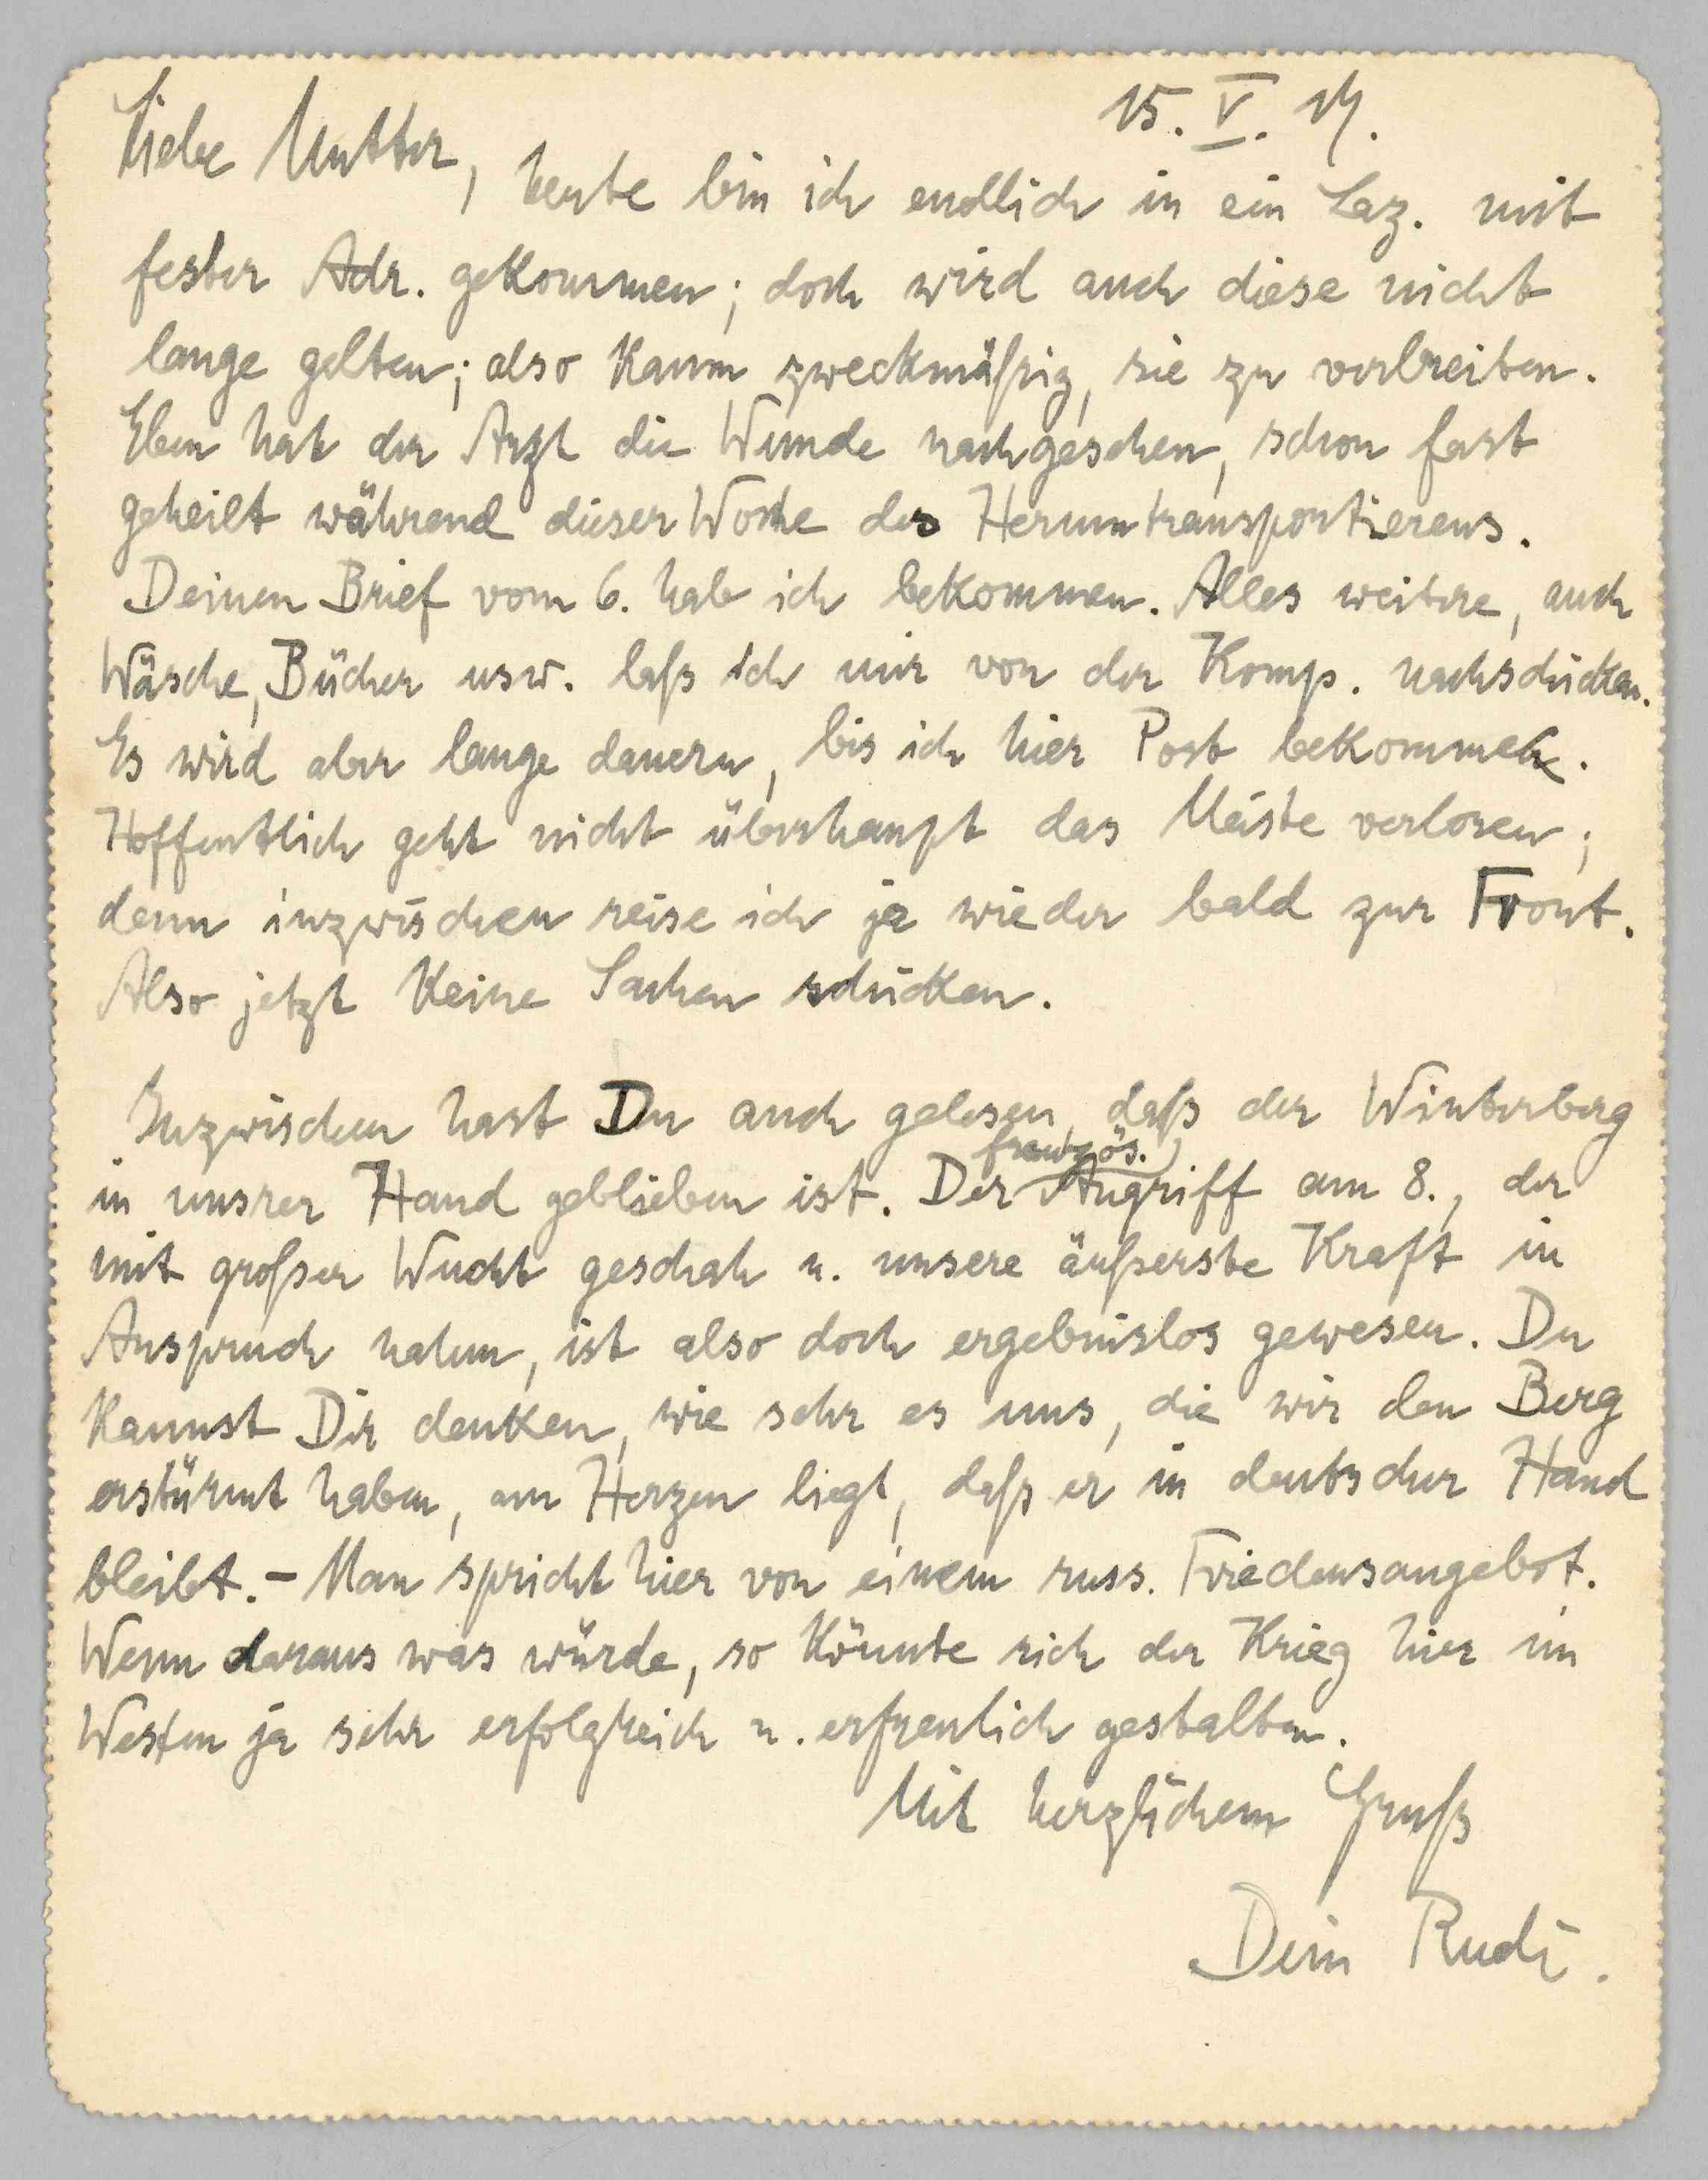 15. V. 17.
Liebe Mutter, heute bin ich endlich in ein Laz. mit
fester Adr. gekommen; doch wird auch diese nicht
lange gelten; also kaum zweckmäßig, sie zu verbreiten.
Eben hat der Arzt die Wunde nachgesehen, schon fast
geheilt während dieser Woche des Herumtransportierens.
Deinen Brief vom 6. hab ich bekommen. Alles weitere, auch
Wäsche, Bücher usw. laß ich mir von der Komp. nachschicken.
Es wird aber lange dauern, bis ich hier Post bekomme.
Hoffentlich geht nicht überhaupt das Meiste verloren;
denn inzwischen reise ich ja wieder bald zur Front.
Also jetzt keine Sachen schicken.
Inzwischen hast Du auch gelesen, daß der Winterberg
in unsrer Hand geblieben ist. Der französ. Angriff am 8., der
mit großer Wucht geschah u. unsere äußerste Kraft in
Anspruch nahm, ist also doch ergebnislos gewesen. Du
kannst Dir denken, wie sehr es uns, die wir den Berg
erstürmt haben, am Herzen liegt, daß er in deutscher Hand
bleibt. - Man spricht hier von einem russ. Friedensangebot.
Wenn daraus was würde, so könnte sich der Krieg hier im
Westen ja sehr erfolgreich u. erfreulich gestalten.
Mit herzlichem Gruß
Dein Rudi.